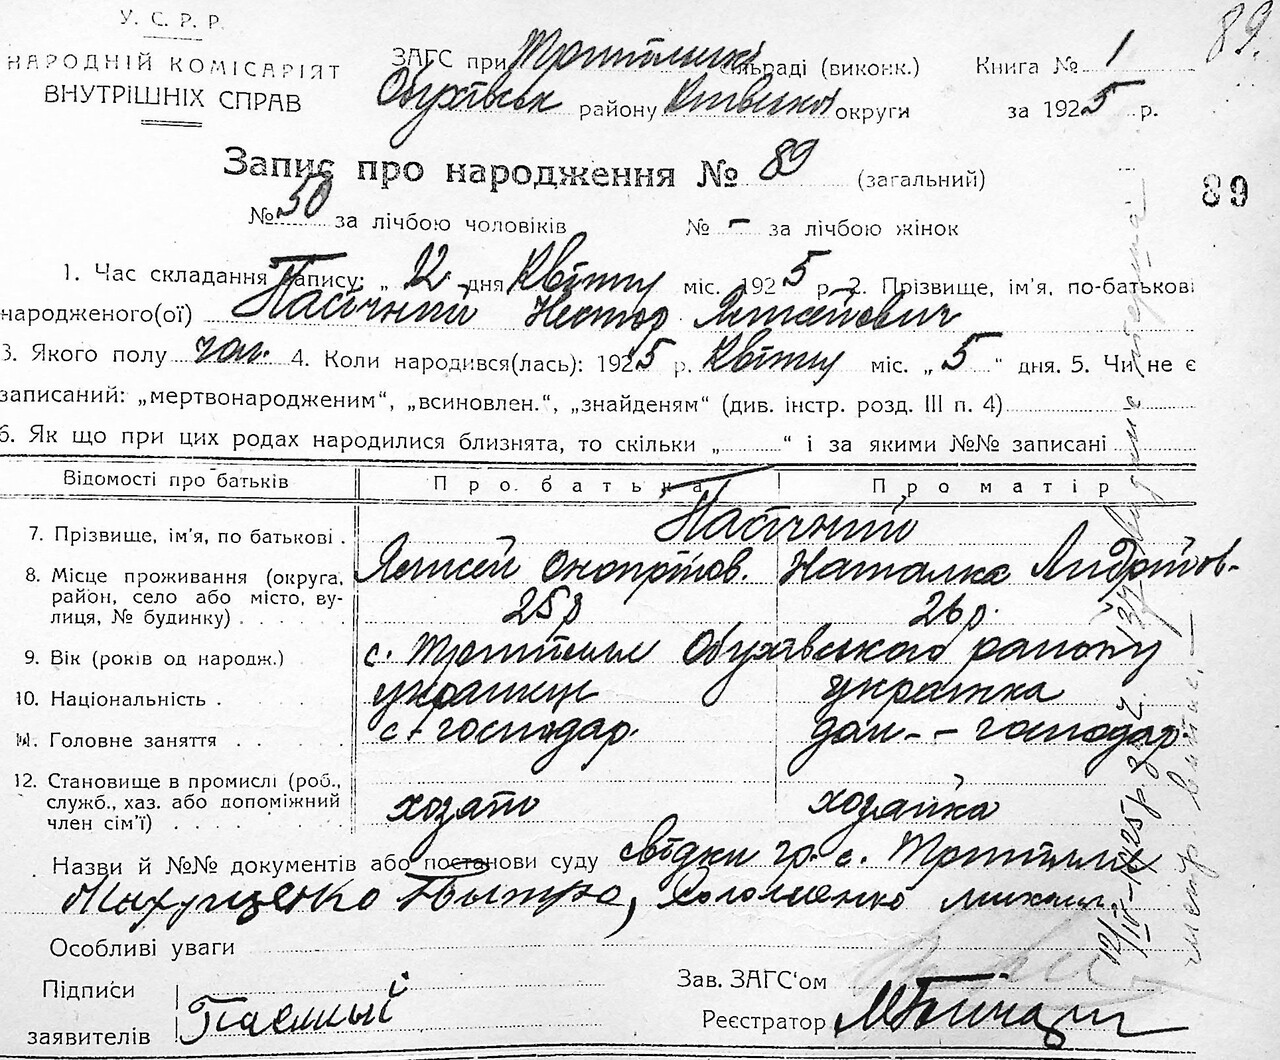 89.
У. С. Р. Р.
НАРОДНІЙ КОМІСАРІЯТ
ВНУТРІШНІХ СПРАВ
ЗАГС при Трипільскі сільраді (виконк.) Книга № 1
Обухівськ району Київської округи за 1925 р.
Запис про народження № 89 (загальний)
89
№ 50 за лічбою чоловіків № - за лічбою жінок
1. Час складання запису: „ 22 дня Квітня міс. 1925 р. 2. Прізвище, ім'я, по-батькові
народженого(ої) Пасічний Нестор
3. Якого полу чол. 4. Коли народився(лась): 1925 р. Квітня міс. „ 5 “ дня. 5. Чи не є
записаний: „мертвонародженим“, „всиновлен.“, „знайденям“ (див. інстр. розд. III п. 4)
6. Як що при цих родах народилися близнята, то скільки „ “ і за якими №№ записані
Відомості про батьків Про батька Про матір
7. Прізвище, ім'я, по батькові . Пасічний
8. Місце проживання (округа, район, село або місто, вулиця, № будинку) . . . . . . Наталка
25 р 26 р.
9. Вік (років од народж.) с. Трипілля Обухівського району
10. Національність . українец українка
11. Головне заняття . . . . . с-господар. дом-- господар.
12. Становище в промислі (роб., служб., хаз. або допоміжний член сім'ї) . . . . . . . хозяїн хозяйка
Назви й №№ документів або постанови суду свідки гр. с. Трипілля
Особливі уваги
Підписи
заявителів
Зав. ЗАГС'ом
Реєстратор